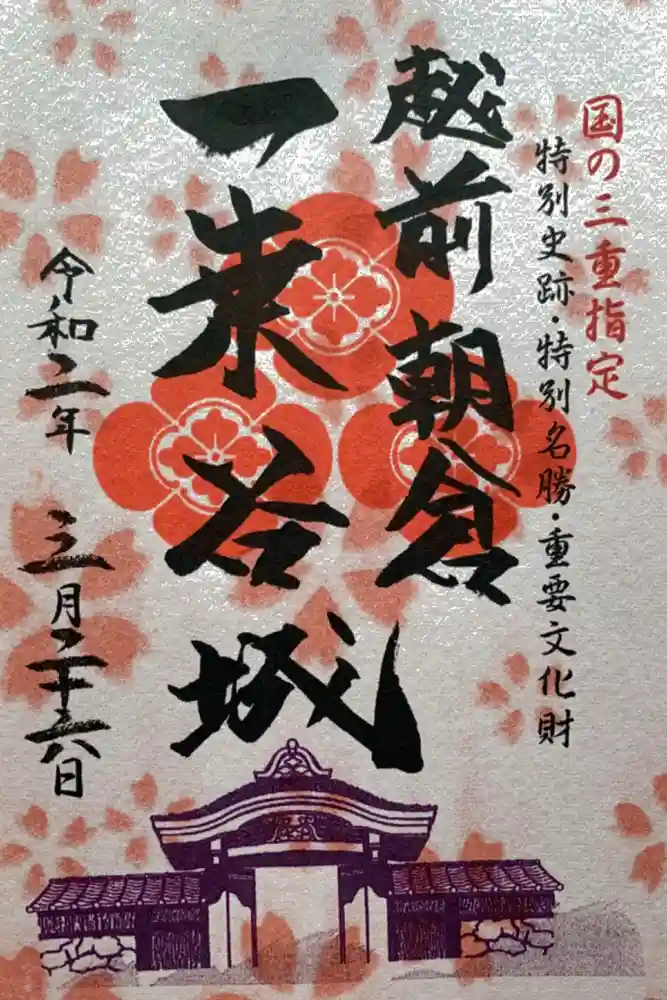 国の三重指定
特別史跡・特別名勝・重要文化財
越前 朝倉
一乗谷城
令和二年 三月二十六日